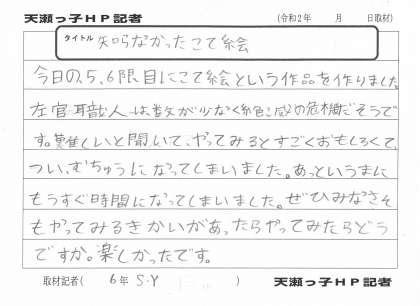 天瀬っ子HP記者
(令和2年 月 日取材)
タイトル 知らなかったこて絵
今日の、5、6限目にこて絵という作品を作りました。
左官職人は、数が少なく絶滅の危機だそうで
す。難しいと聞いて、やってみるとすごくおもしろくて、
つい、むちゅうになってしまいました。あっというまに
もうすぐ時間になってしまいました。ぜひみなさそ
もやってみるきかいがあったらやってみたらどう
ですか。楽しかったです。
取材記者( 6年 S・Y )
天瀬っ子HP記者